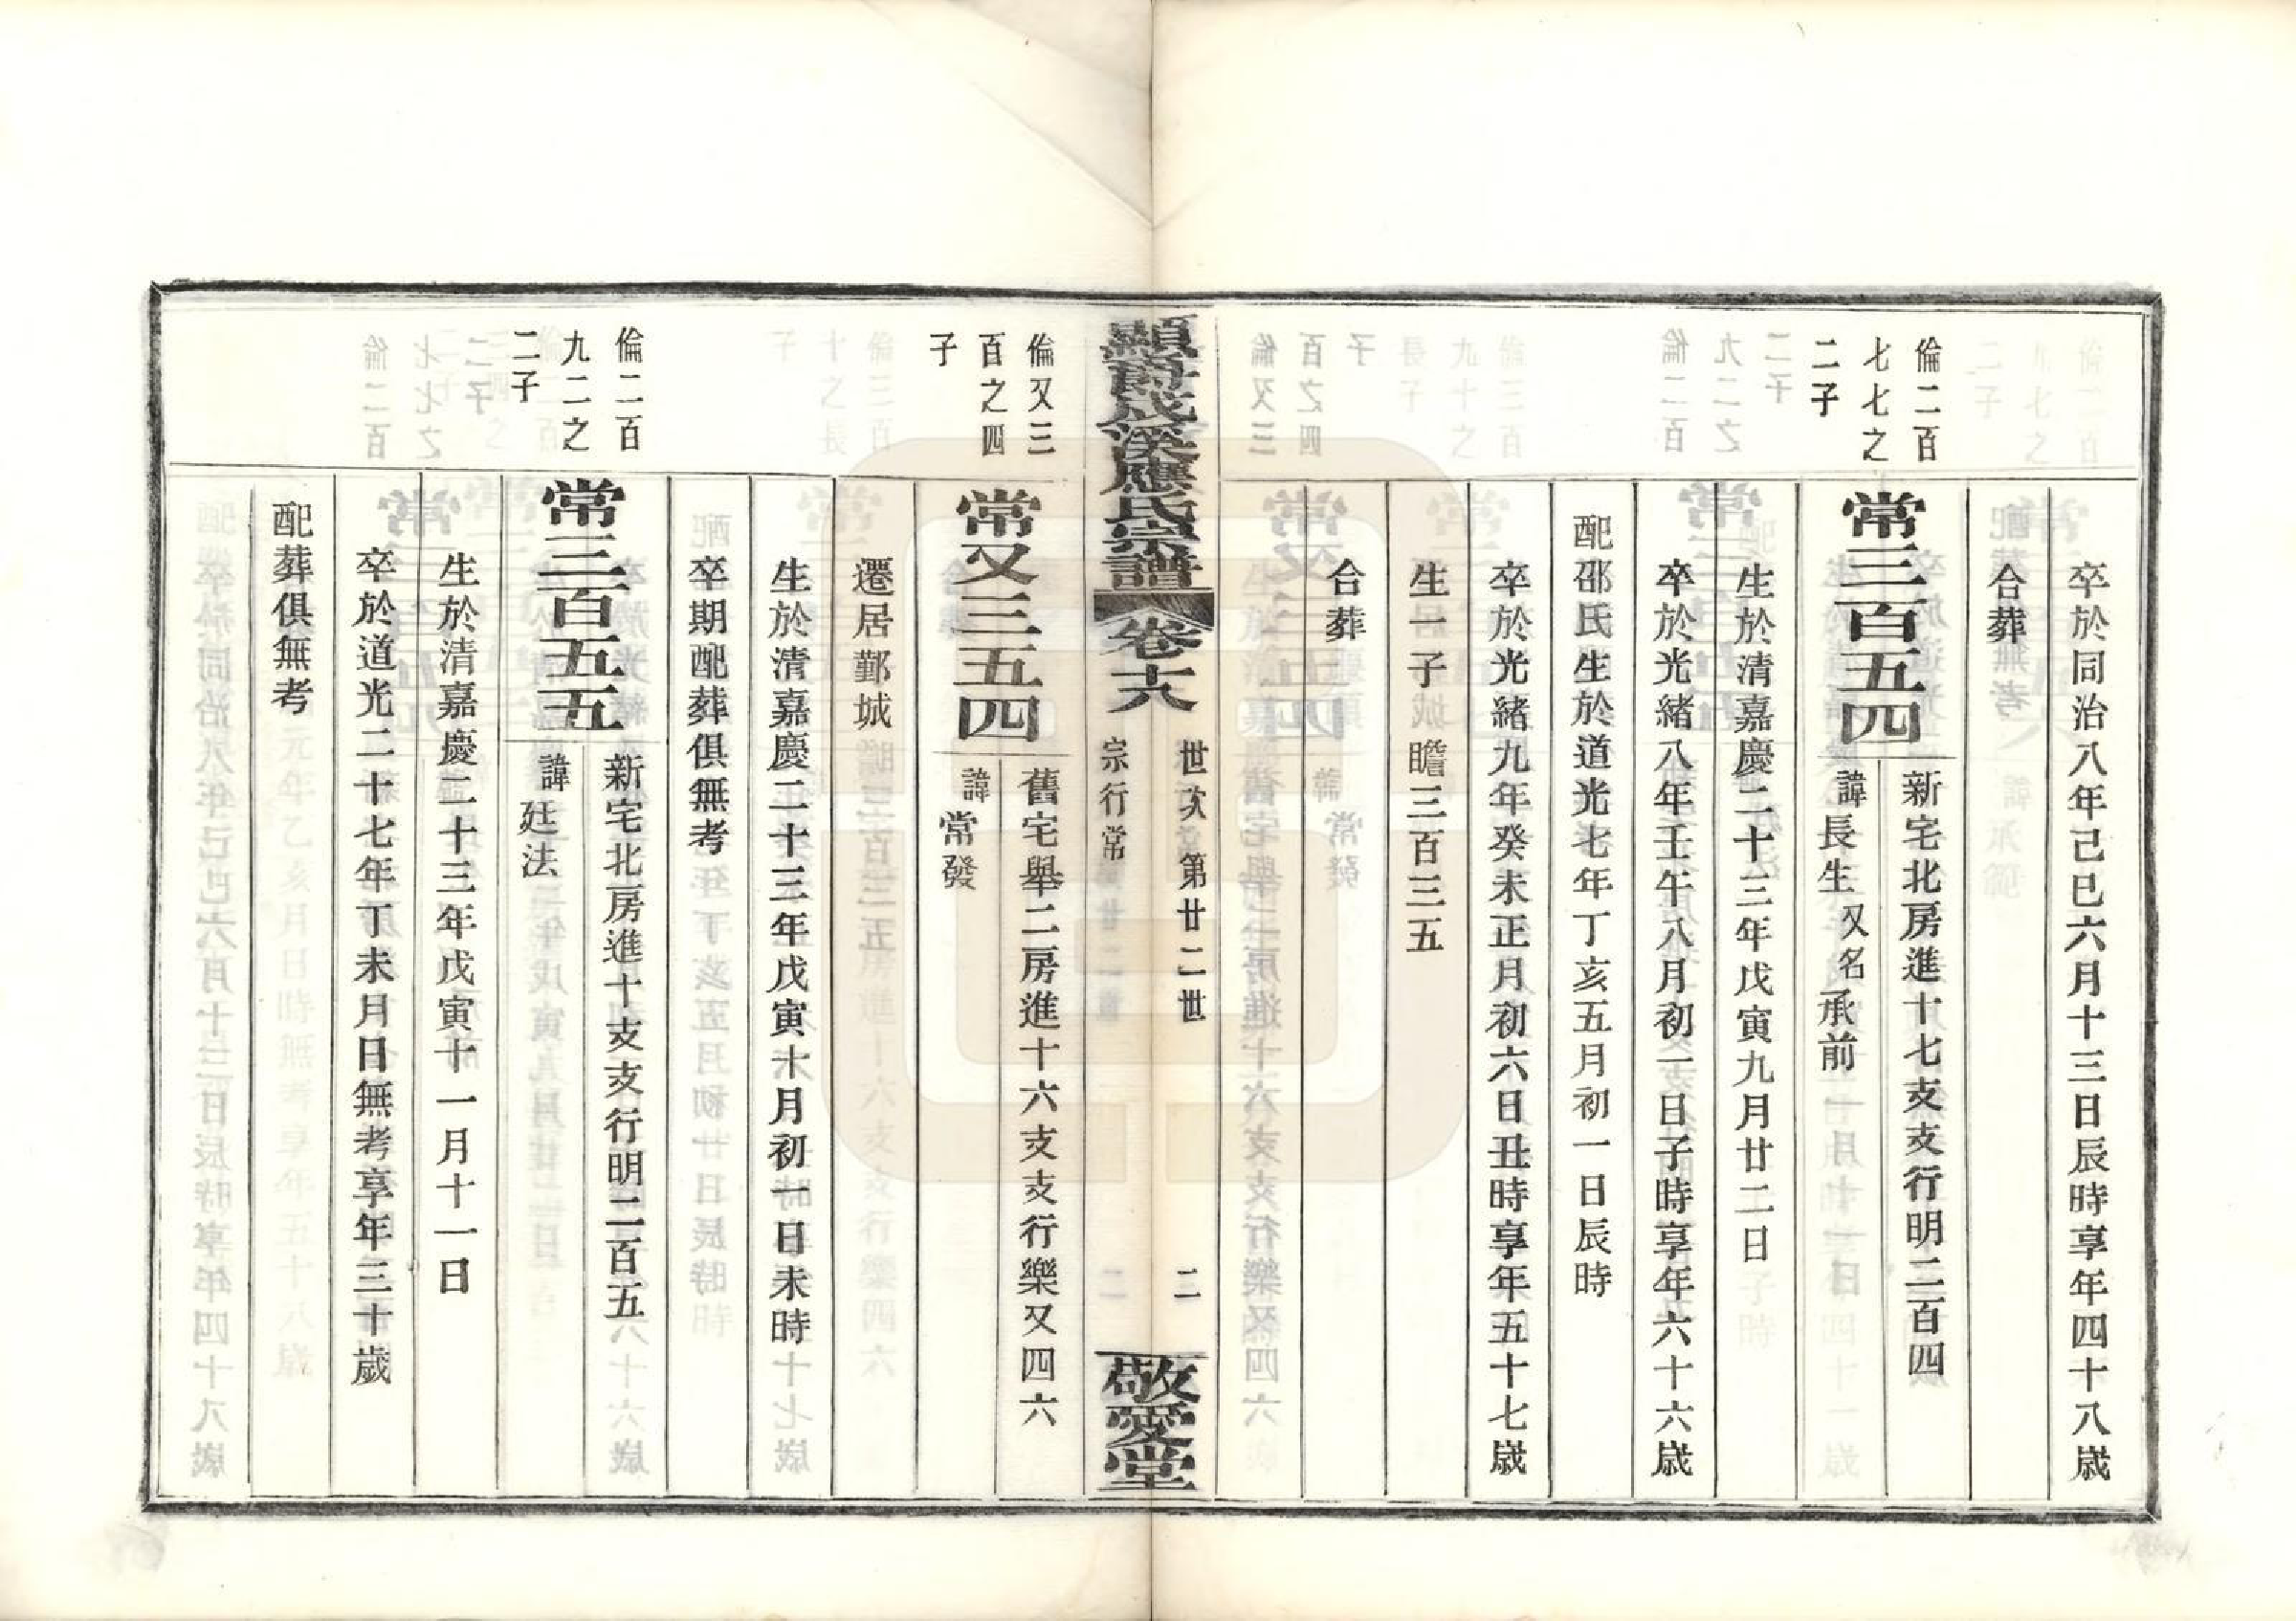 卒於同治八年己巳六月十三日辰時享年四十八歲
合葬
倫二百
七七之
二子
常三百五四
新宅北房進十七支支行明二百四
諱長生又名承前
生於清嘉慶二十三年戊寅九月廿二日
卒於光緒八年壬午八月初一日子時享年六十六歲
配邵氏生於道光七年丁亥五月初一日辰時
卒於光緒九年癸未正月初六日丑時享年五十七歲
生一子 瞻三百三五
合葬
顯爵成溪應氏宗譜
卷十八
世次 第廿二世
宗行常
二
敬愛堂
倫又三
百之四
子
常又三五四
舊宅舉二房進十六支支行樂又四六
諱常發
遷居鄞城
生於清嘉慶二十三年戊寅十月初一日未時
卒期配葬俱無考
倫二百
九二之
二子
常三百五五
新宅北房進十支支行明二百五
諱廷法
生於清嘉慶二十三年戊寅十一月十一日
卒於道光二十七年丁未月日無考享年三十歲
配葬俱無考